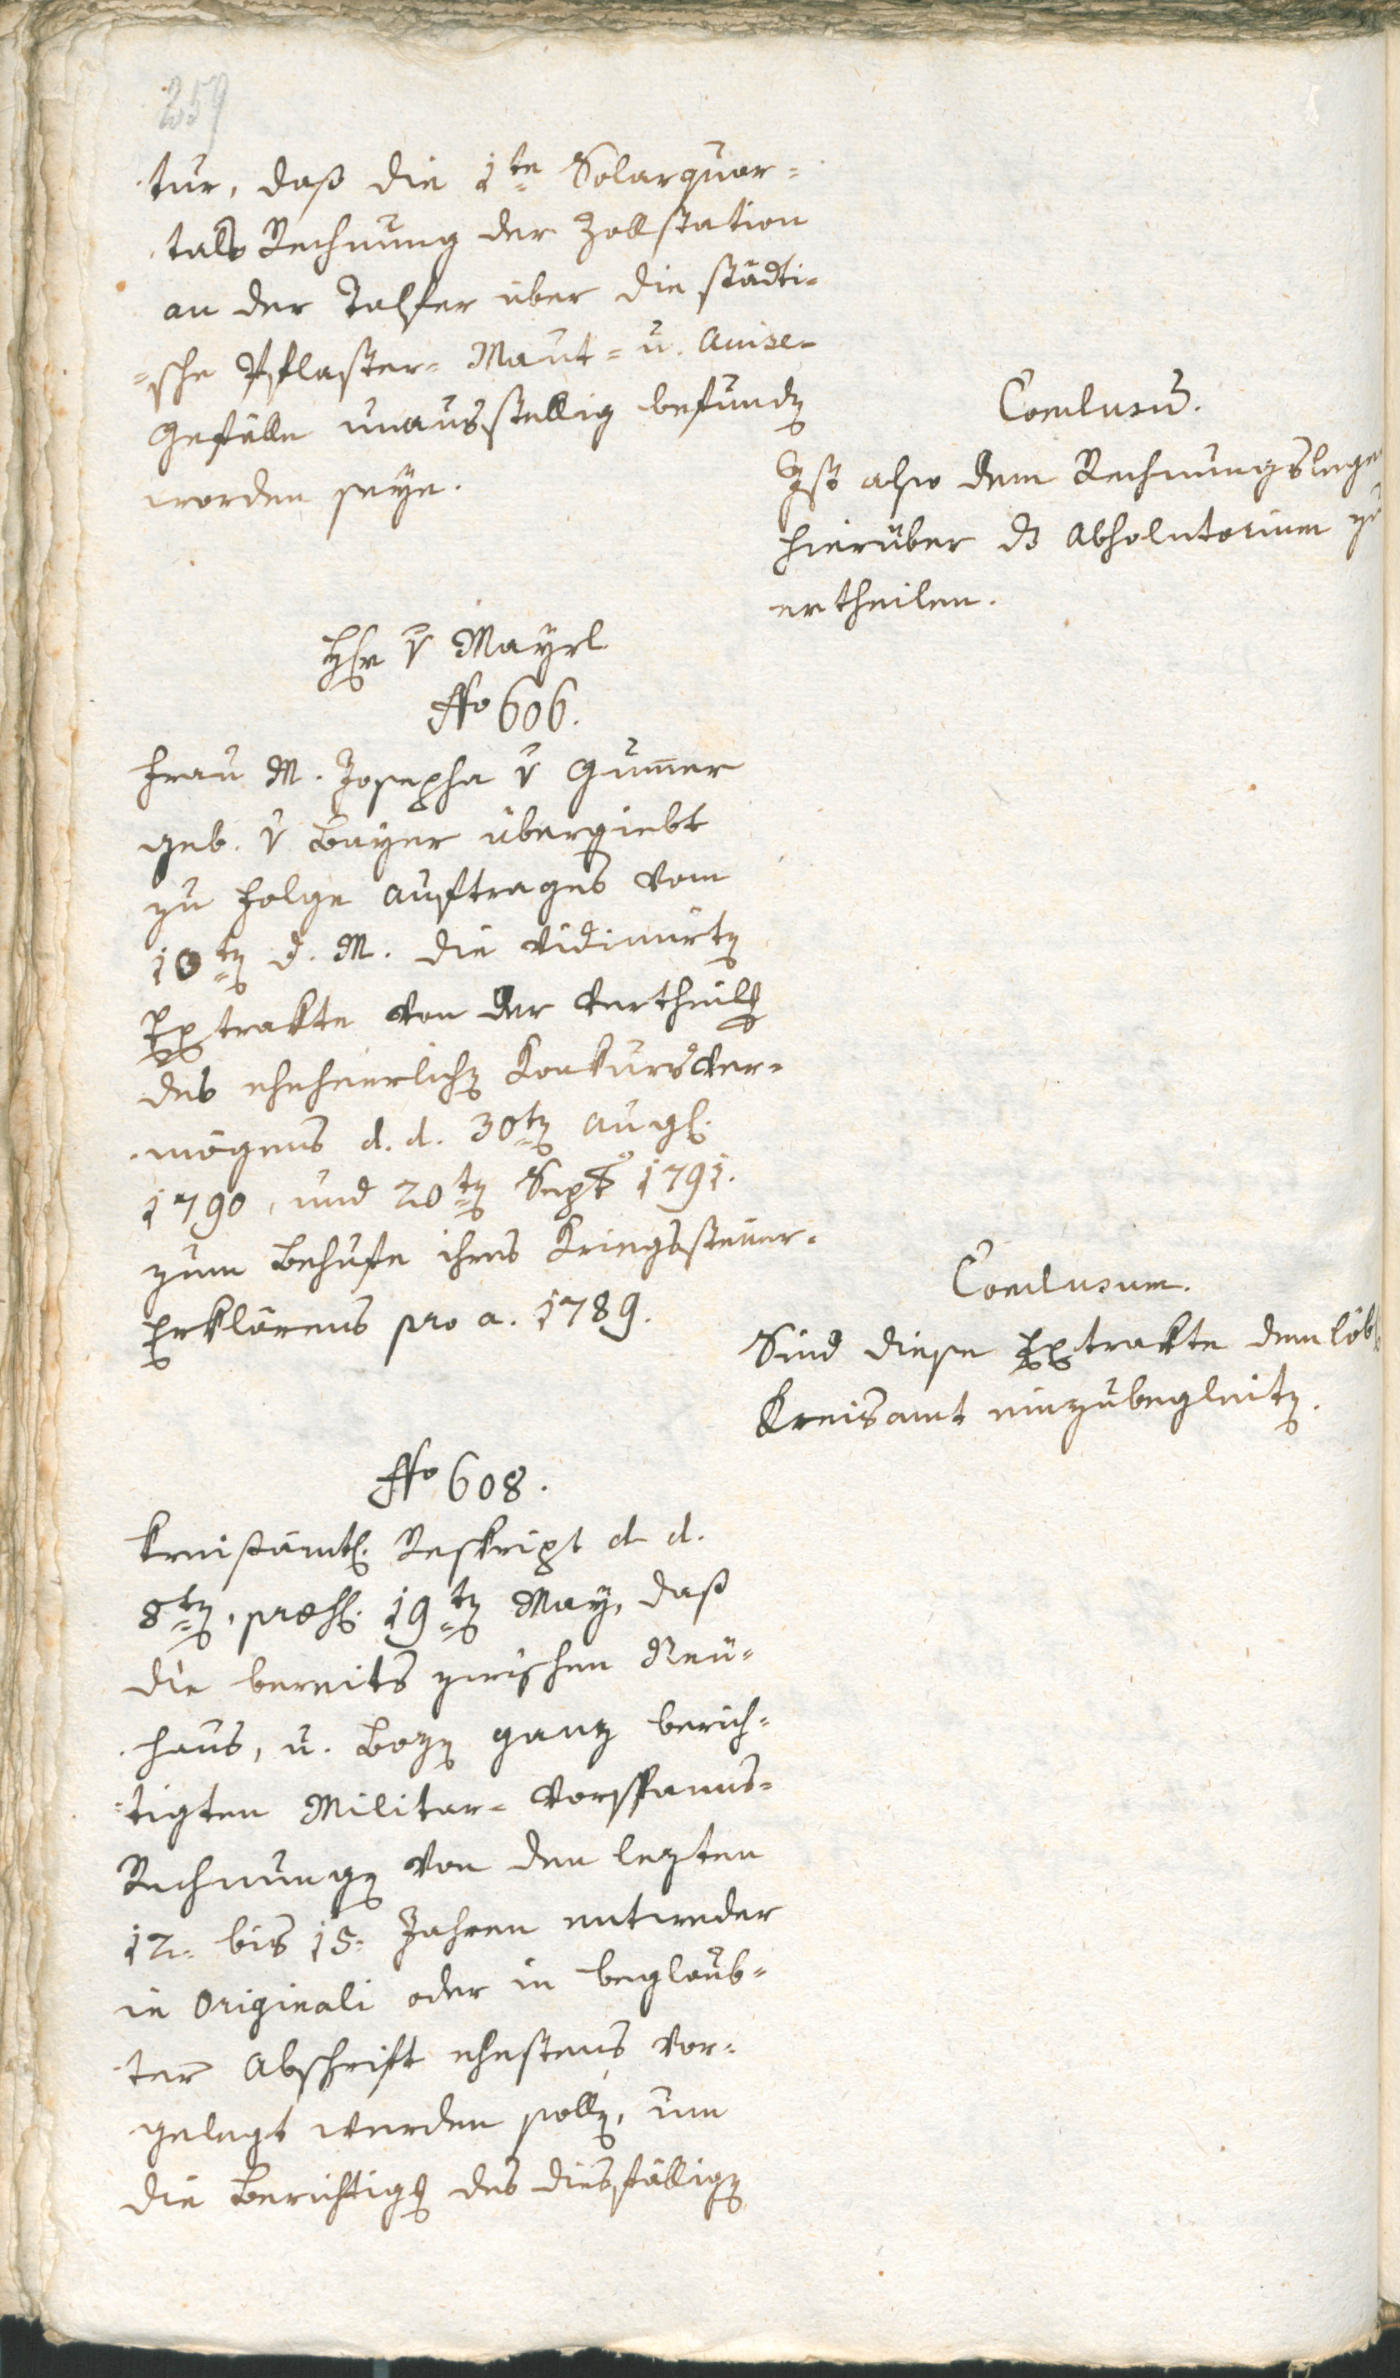 259
tur, daß die 1te Solarquar=
tals Rechnung der Zollstation
an der Talfer über die städti-
=sche Pflaster- Maut= u. Accise-
Gefälle unausstellig befunden
worden seye.
Conclusum.
Ist also dem Rechnungslege
hierüber das Absolutorium zu
ertheilen.
Hr v Mayrl
No 606.
Frau M. Josepha v Gum̄er
geb. v Bayer übergiebt
zu Folge Auftrages vom
10ten d. M. die vidimirten
Extrakte von der Vertheilung
des eheherrlichen Konkursver-
mögens d. d. 30ten Augl.
1790, und 20ten Sept 1791.
zum Behufe ihres Kriegssteuer-
Erklärens pro a. 1789.
Conclusum.
Sind diese Extrakte dem löbl
Kreisamt einzubegleiten.
No 608.
Kreisämtl. Reskript d. d.
8ten, præs. 19ten May, daß
die bereits zwischen Neu=
haus, u. Bozen ganz berich=
=tigten Militar- Vorspanns-
Rechnungen von den lezten
12= bis 15= Jahren entweder
in Originali oder in beglaub=
ter Abschrift ehestens vor=
gelegt werden sollen, um
die Berichtigung des diesfälligen